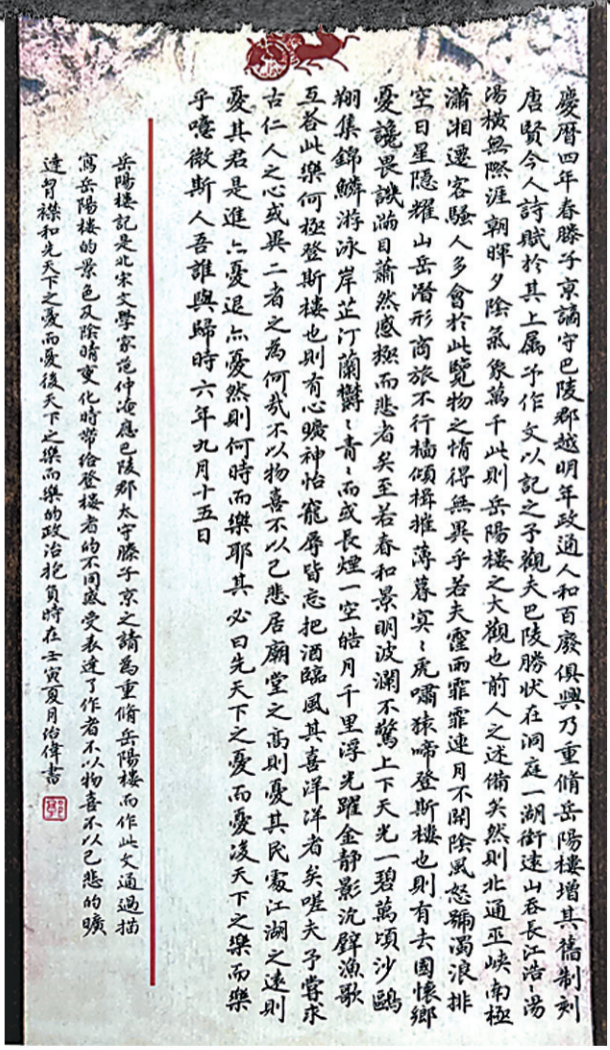 慶曆四年春滕子京謫守巴陵郡越明年政通人和百廢俱興乃重脩岳陽樓增其舊制刻
唐賢今人詩賦於其上屬予作文以記之予觀夫巴陵勝狀在洞庭一湖銜遠山吞長江浩〻湯
湯橫無際涯朝暉夕陰氣象萬千此則岳陽樓之大觀也前人之述備矣然則北通巫峽南極
瀟湘遷客騷人多會於此覽物之情得無異乎若夫霪雨霏霏連月不開陰風怒號濁浪排
空日星隱耀山岳潛形商旅不行檣傾楫摧薄暮冥〻虎嘯猿啼登斯樓也則有去國懷鄉
憂讒畏譏滿目蕭然感極而悲者矣至若春和景明波瀾不驚上下天光一碧萬頃沙鷗
翔集錦鱗游泳岸芷汀蘭鬱〻青〻而或長煙一空皓月千里浮光躍金靜影沉璧漁歌
互答此樂何極登斯樓也則有心曠神怡寵辱皆忘把酒臨風其喜洋洋者矣嗟夫予嘗求
古仁人之心或異二者之為何哉不以物喜不以己悲居廟堂之高則憂其民處江湖之遠則
憂其君是進亦憂退亦憂然則何時而樂耶其必曰先天下之憂而憂後天下之樂而樂
乎噫微斯人吾誰與歸時六年九月十五日
岳陽樓記是北宋文學家范仲淹應巴陵郡太守滕子京之請為重脩岳陽樓而作此文通過描
寫岳陽樓的景色及陰晴變化時帶給登樓者的不同感受表達了作者不以物喜不以己悲的曠
達胸襟和先天下之憂而憂後天下之樂而樂的政治抱負時在壬寅夏月治偉書